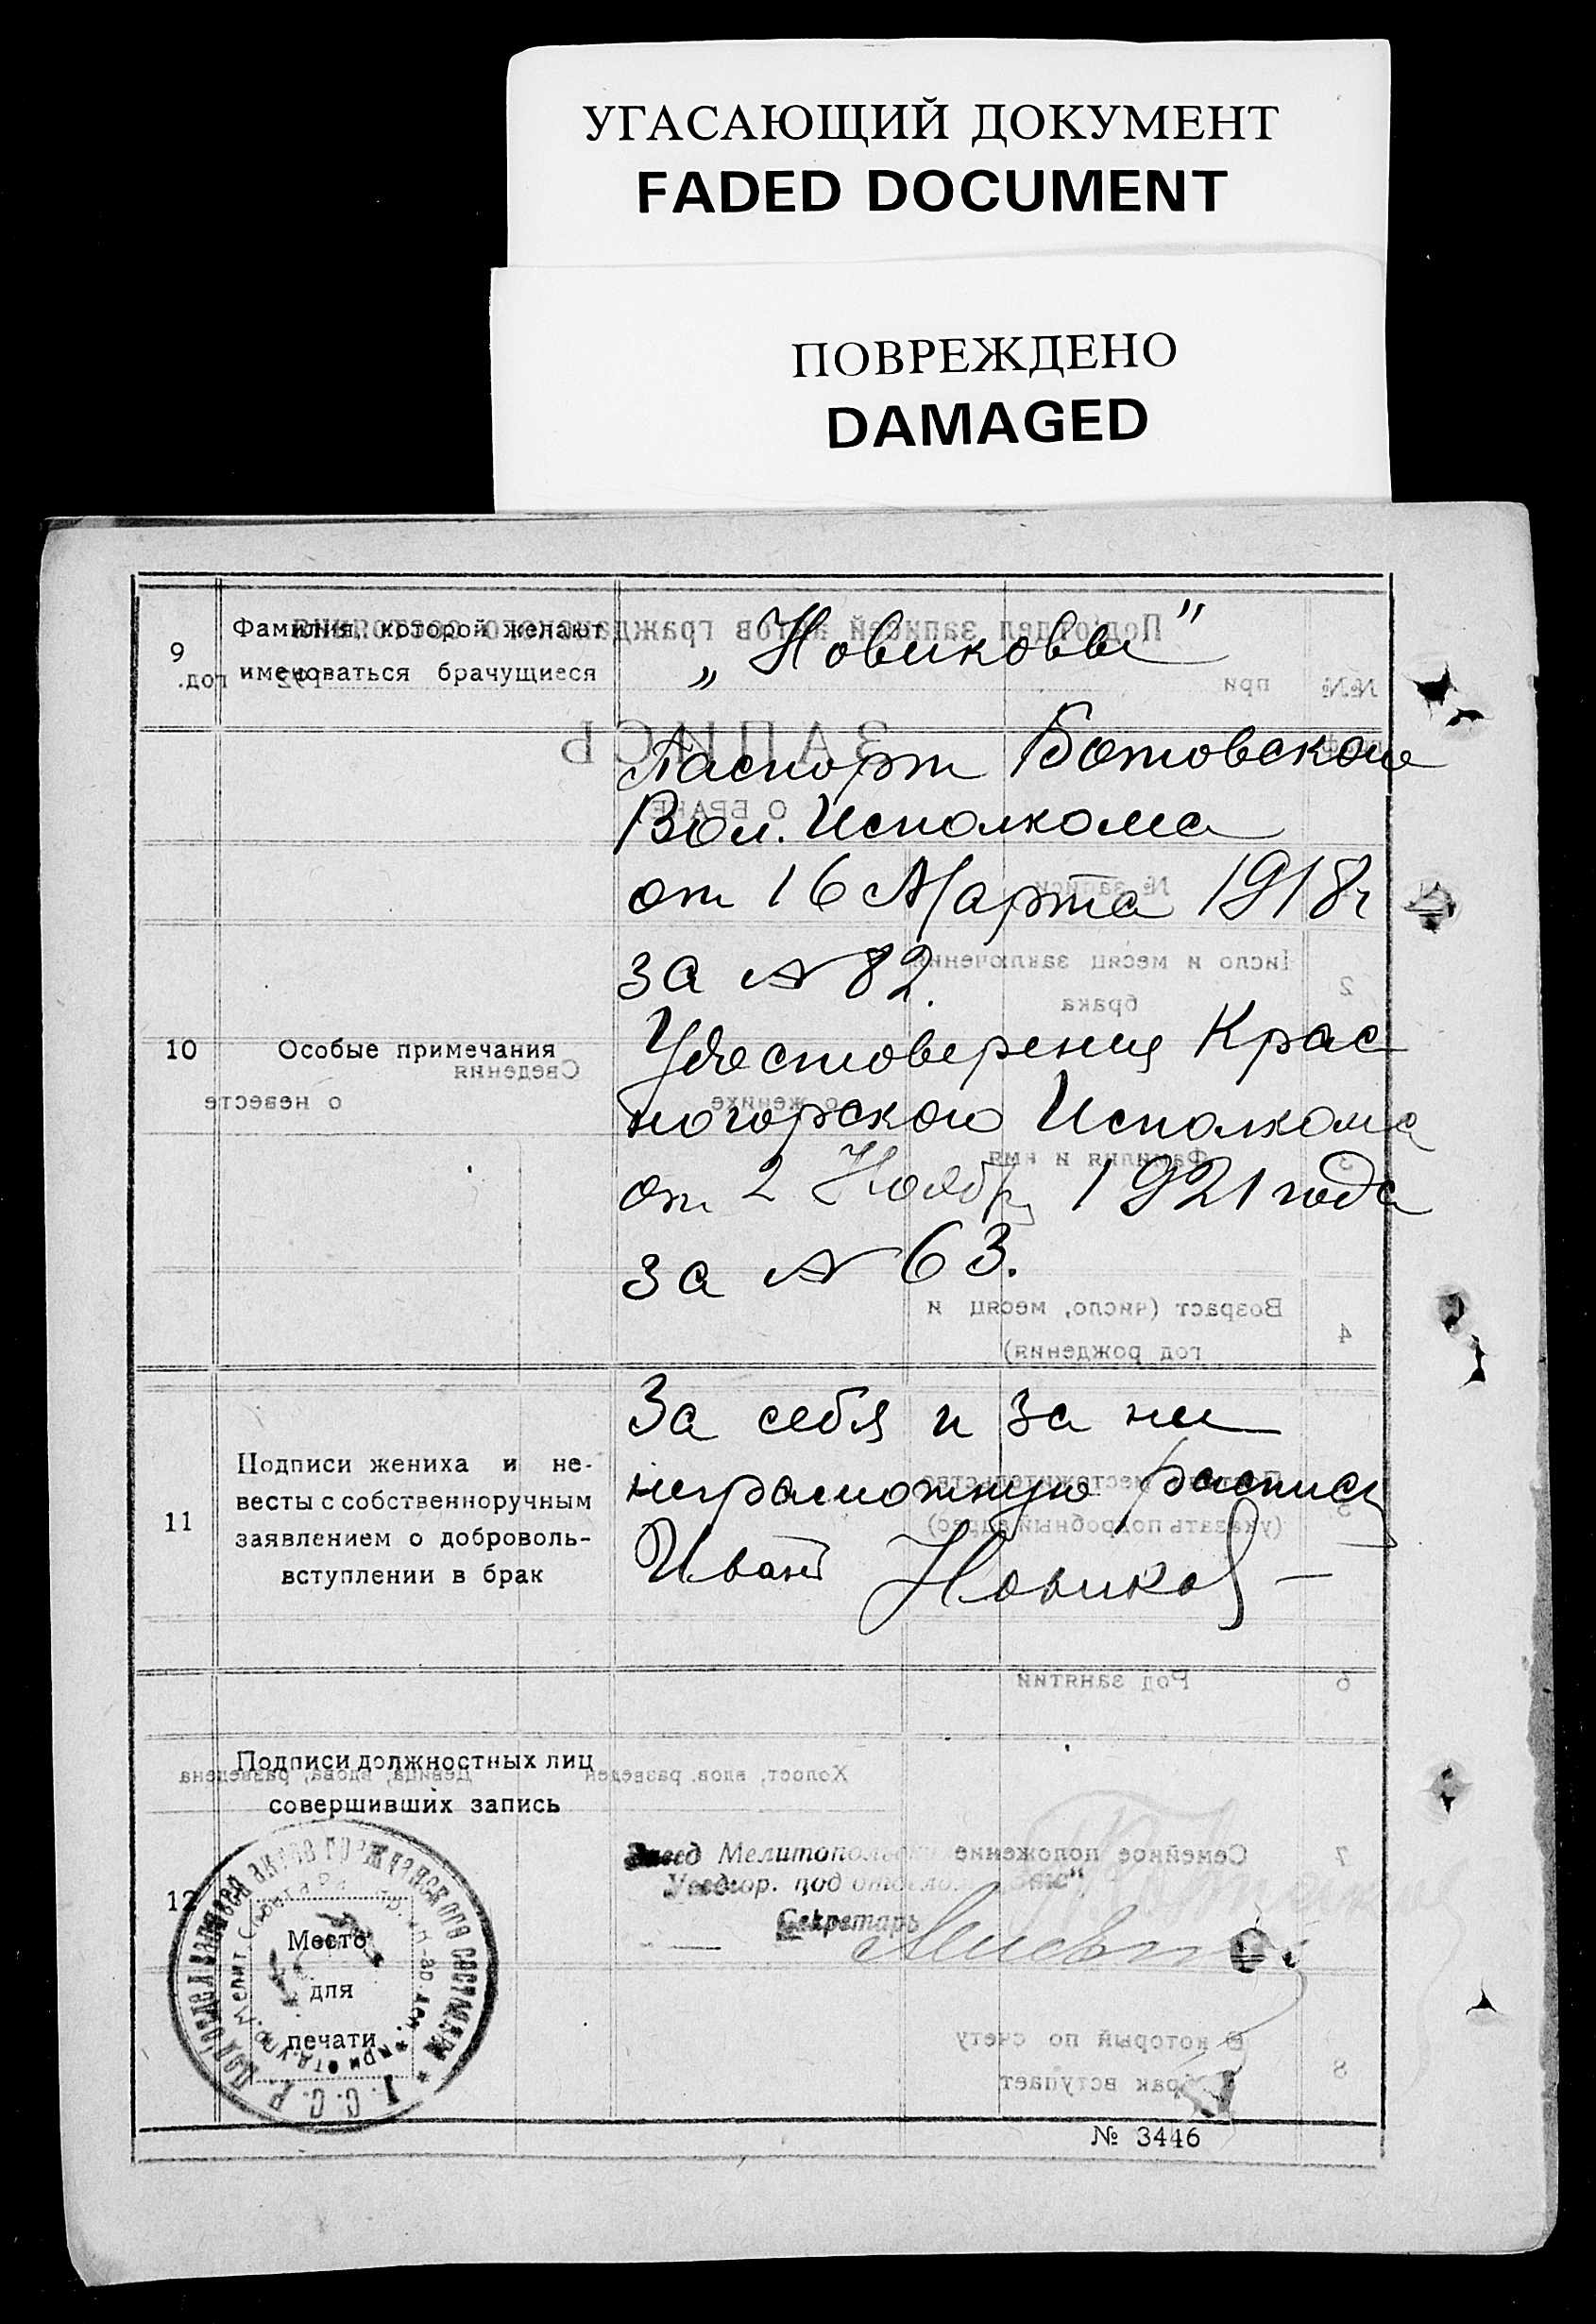 УГАСАЮЩИЙ ДОКУМЕНТ
FADED DOCUMENT
ПОВРЕЖДЕНО
DAMAGED
9
Фамилия, которой желают
именоваться брачущиеся
„Новиковы"
10
Особые примечания
Паспорт Ботовского
Вол. Исполкома
от 16 Марта 1918г
за № 82.
Удостоверения Крас
ногорского Исполкома
от 2 Ноябр 1921 года
за № 63.
11
Подписи жениха и не-
весты с собственноручным
заявлением о доброволь-
вступлении в брак
За себя и за не
неграмотную распися
Иван Новиков
12
Подписи должностных лиц
совершивших запись
Завед Мелитопол
под
Секретарь
Место
для
печати
Подотдел записей актов гражданского состояния
№ 3446